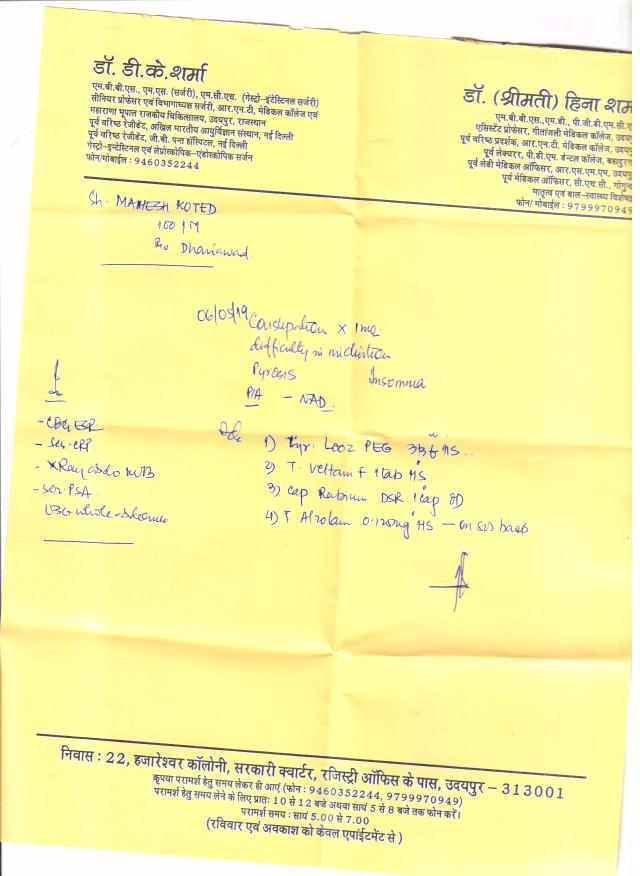 डॉ. डी.के.शर्मा
एम.बी.बी.एस., एम.एस. (सर्जरी), एम.सी.एच. (गेस्ट्रो-इंटेस्टिनल सर्जरी)
सीनियर प्रोफेसर एवं विभागाध्यक्ष सर्जरी, आर.एन.टी. मेडिकल कॉलेज एवं
महाराणा भूपाल राजकीय चिकित्सालय, उदयपुर, राजस्थान
पूर्व वरिष्ठ रेजीडेंट, अखिल भारतीय आयुर्विज्ञान संस्थान, नई दिल्ली
पूर्व वरिष्ठ रेजीडेंट, जी.बी. पन्त हॉस्पिटल, नई दिल्ली
गेस्ट्रो-इन्टेस्टिनल एवं लेप्रोस्कोपिक-एंडोस्कोपिक सर्जन
फोन/मोबाईल : 9460352244
डॉ. (श्रीमती) हिना शर्म
एम.बी.बी.एस., एम.डी., पी.जी.डी.एम.सी.ए
एसिस्टेंट प्रोफेसर, गीतांजली मेडिकल कॉलेज, उदय
पूर्व वरिष्ठ प्रदर्शक, आर.एन.टी. मेडिकल कॉलेज, उदय
पूर्व लेक्चरर, पी.डी.एम. डेन्टल कॉलेज,
पूर्व लेडी मेडिकल ऑफिसर, आर.एस.एम.एम. उदयपु
पूर्व मेडिकल ऑफिसर, सी.एच.सी.,
मातृत्व एवं बाल-स्वास्थ्य विशेषज्ञ
फोन/मोबाईल : 9799970949
Sh. MAHESH KOTED
/M
R/o Dhariawad
06/05/19 Constipation X 1 mo
difficulty in micturition
Pyrosis Insomnia
P/A - NAD
- CBC, ESR
- Ser. CRP
- XRay abdo KUB
- Ser. PSA
USG whole abdomen
1) Syr. Looz PEG HS
2) T. Veltam F 1tab HS
3) Cap Rabium DSR 1cap OD
4) T Alrolam 0.125mg HS - on SOS basis
निवास : 22, हजारेश्वर कॉलोनी, सरकारी क्वार्टर, रजिस्ट्री ऑफिस के पास, उदयपुर - 313001
कृपया परामर्श हेतु समय लेकर ही आएं (फोन : 9460352244, 9799970949)
परामर्श हेतु समय लेने के लिए प्रातः 10 से 12 बजे अथवा सायं 5 से 8 बजे तक फोन करें।
परामर्श समय : सायं 5.00 से 7.00
(रविवार एवं अवकाश को केवल एपांईटमेंट से)